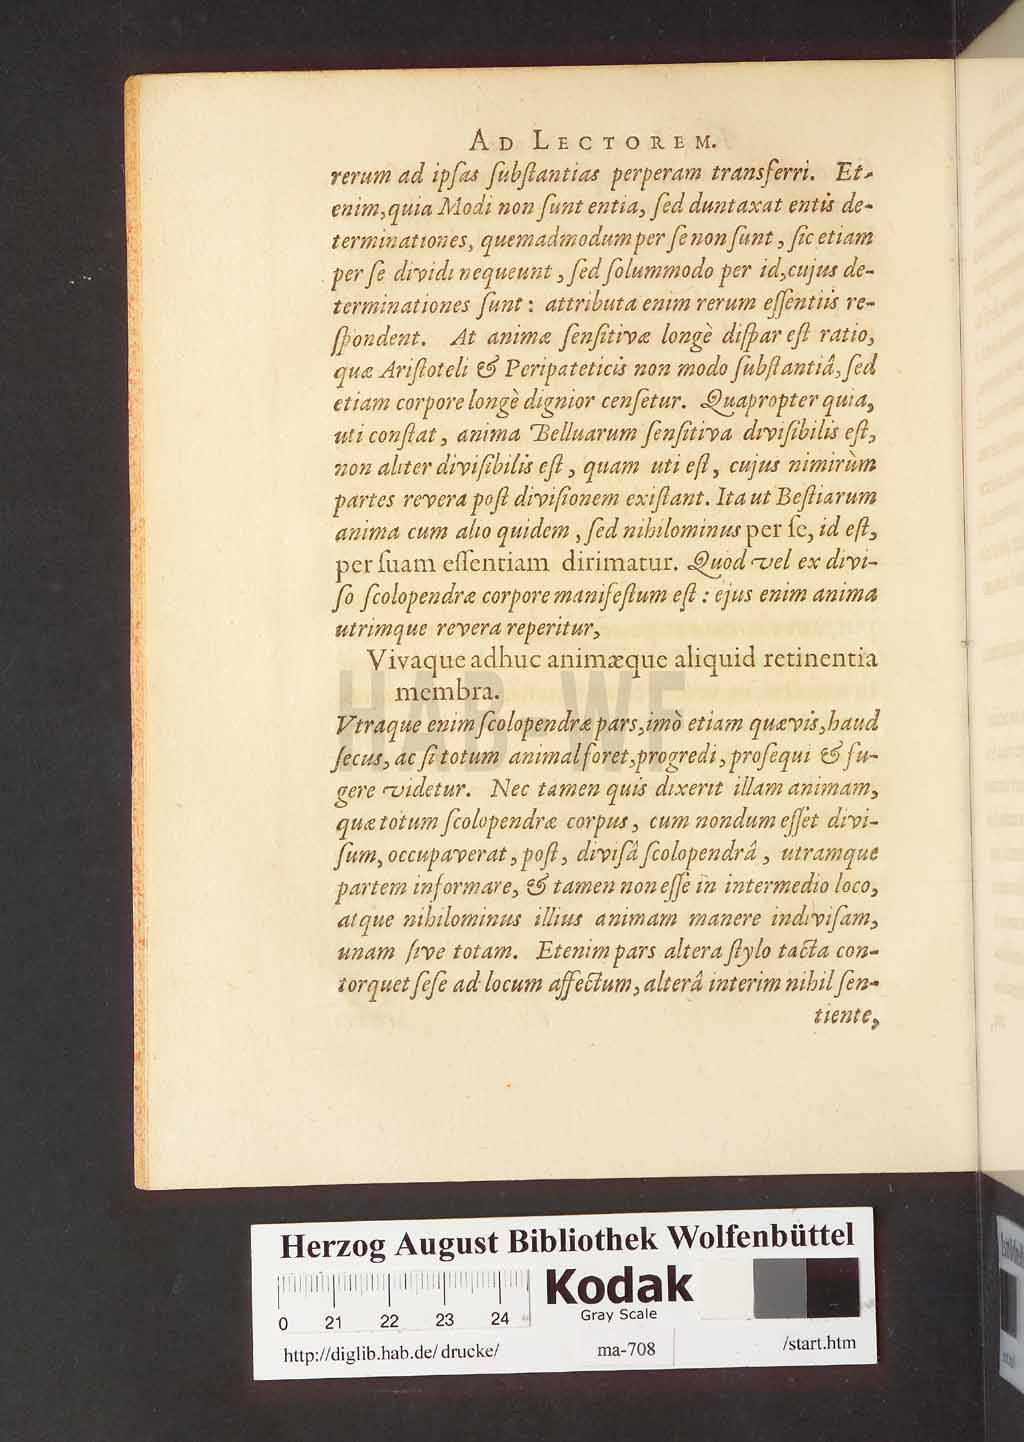 AD LECTOREM.
rerum ad ipſas ſubſtantias perperam transferri. Et-
enim, quia Modi non ſunt entia, ſed duntaxat entis de-
terminationes, quemadmodum per ſe non ſunt, ſic etiam
per ſe dividi nequeunt, ſed ſolummodo per id, cujus de-
terminationes ſunt: attributa enim rerum eſſentiis re-
ſpondent. At animæ ſenſitivæ longè diſpar eſt ratio,
quæ Ariſtoteli & Peripateticis non modo ſubſtantiâ, ſed
etiam corpore longè dignior cenſetur. Quapropter quia,
uti conſtat, anima Belluarum ſenſitiva diviſibilis eſt,
non aliter diviſibilis eſt, quam uti eſt, cujus nimirùm
partes revera poſt diviſionem exiſtant. Ita ut Beſtiarum
anima cum alio quidem, ſed nihilominus per ſe, id eſt,
per ſuam eſſentiam dirimatur. Quod vel ex divi-
ſo ſcolopendræ corpore manifeſtum eſt: ejus enim anima
utrimque revera reperitur,
Vivaque adhuc animæque aliquid retinentia
membra.
Vtraque enim ſcolopendræ pars, imò etiam quævis, haud
ſecus, ac ſi totum animal foret, progredi, proſequi & fu-
gere videtur. Nec tamen quis dixerit illam animam,
quæ totum ſcolopendræ corpus, cum nondum eſſet divi-
ſum, occupaverat, poſt, diviſâ ſcolopendrâ, utramque
partem informare, & tamen non eſſe in intermedio loco,
atque nihilominus illius animam manere indiviſam,
unam ſive totam. Etenim pars altera ſtylo tacta con-
torquet ſeſe ad locum affectum, alterâ interim nihil ſen-
tiente,
HAB-WF
Herzog August Bibliothek Wolfenbüttel
Kodak
Gray Scale
0 21 22 23 24
http://diglib.hab.de/ drucke/ ma-708 /start.htm